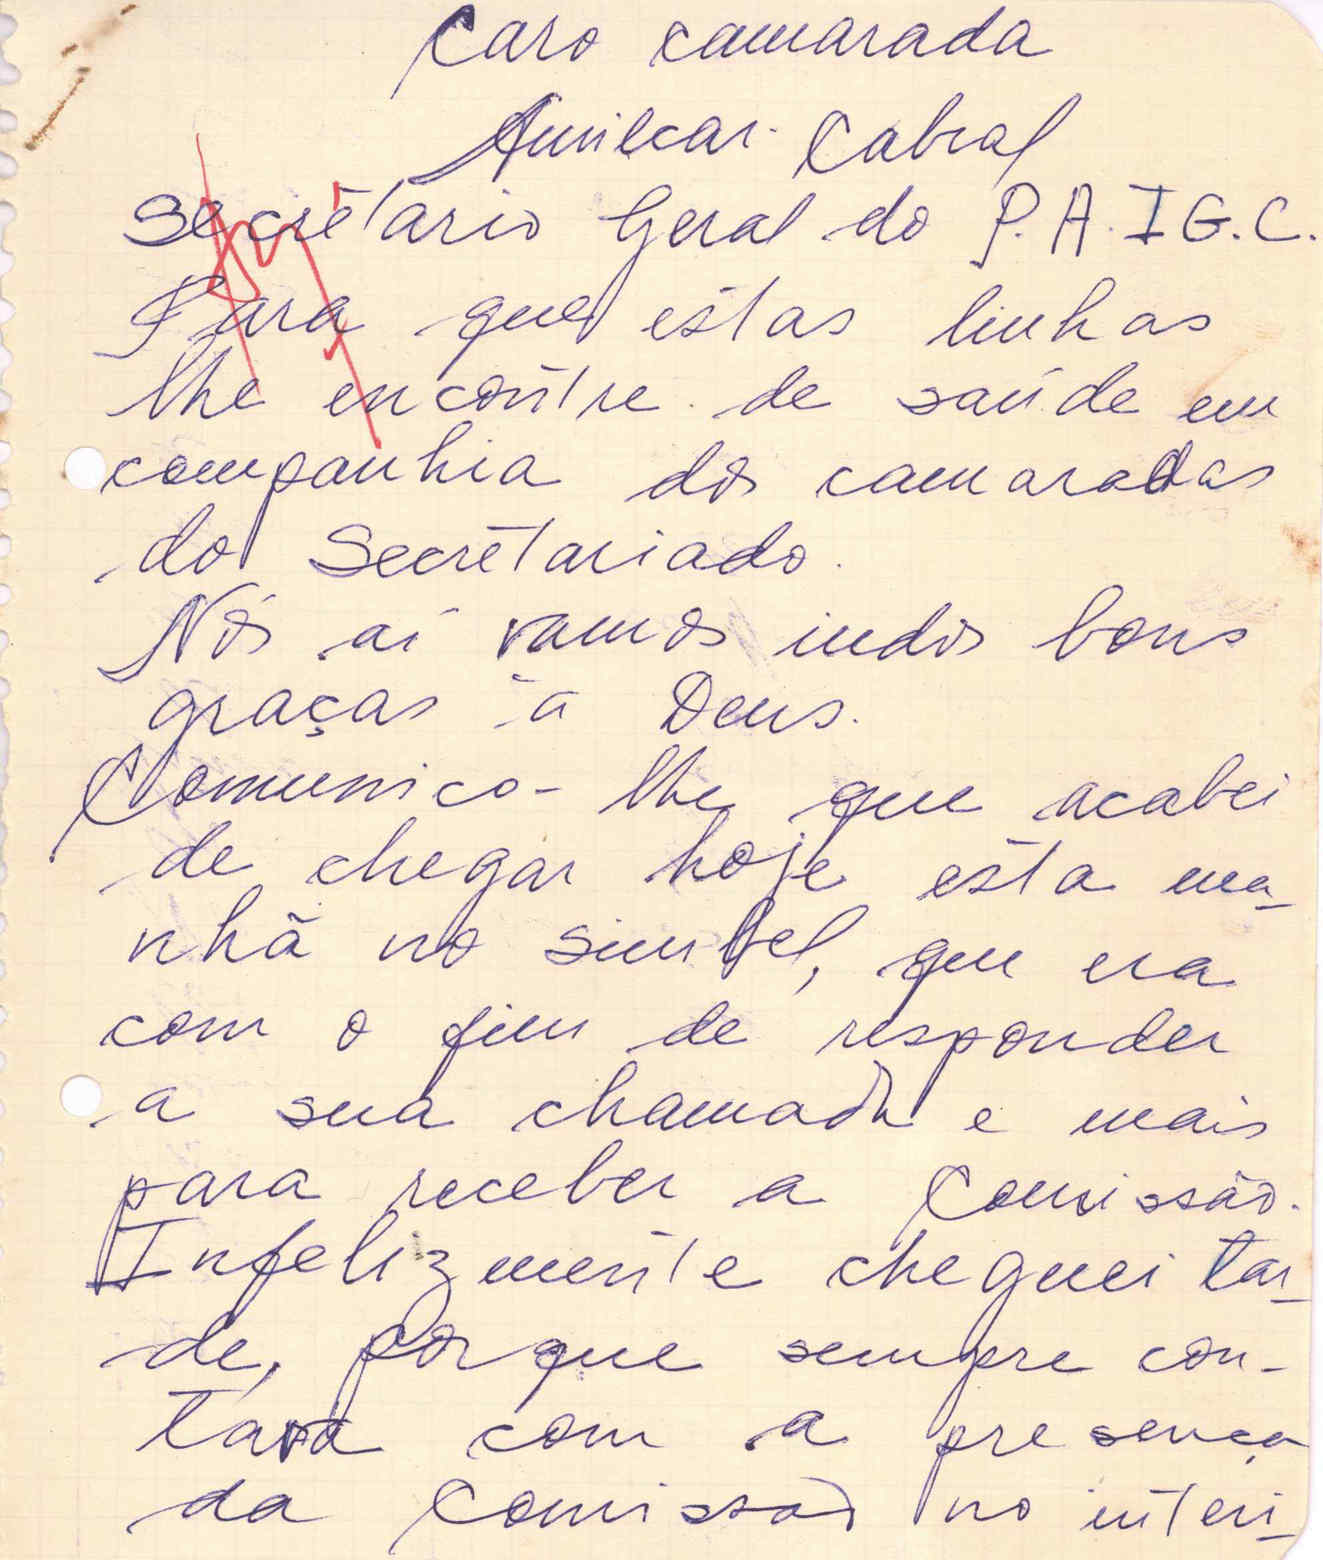 Caro camarada
Amilcar Cabral
Secretário Geral do P.A.IG.C.
Para que estas linhas
lhe encontre de saúde em
companhia dos camaradas
do Secretariado.
Nós aí vamos indos bons
graças à Deus.
Comunico-lhe que acabei
de chegar hoje esta ma-
nhã no simbel, que era
com o fim de responder
a sua chamada e mais
para receber a Comissão.
Infelizmente cheguei tar-
de, porque sempre con-
tava com a presença
da Comissão no interi-